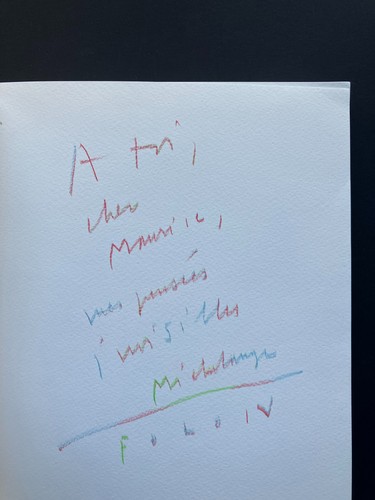 A toi,
cher
Maurice,
mes pensées
invisibles
Michelange
F. L. IV